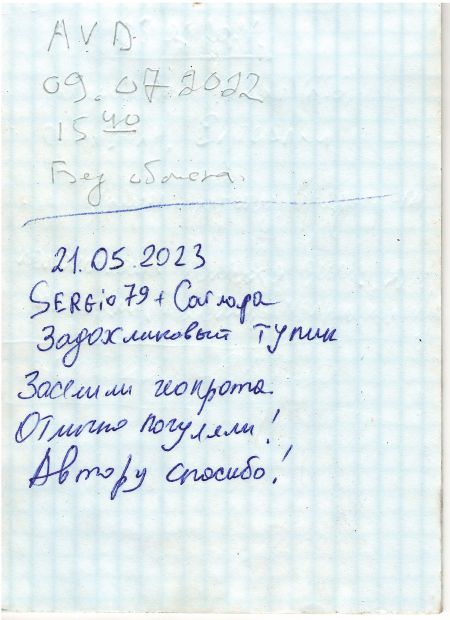 AVD
09.07.2022
15 40
Без обмена.
21.05.2023
SERGIO79 + Саглара
Задохликовый тупик
Заселили геопрота.
Отлично погуляли!
Автору спасибо!